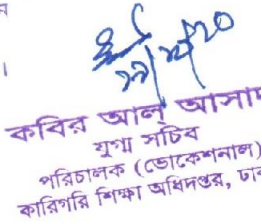 ।
কবির আল্ আসাদ
যুগ্ম সচিব
পরিচালক (ভোকেশনাল)
কারিগরি শিক্ষা অধিদপ্তর,